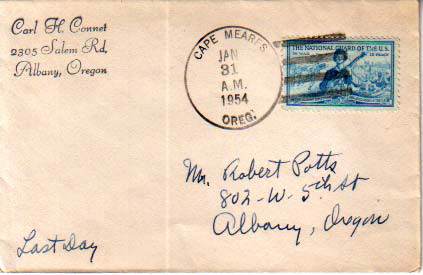 Carl H. Connet
2305 Salem Rd,
Albany, Oregon
CAPE MEARES
JAN
31
A.M.
1954
OREG.
THE NATIONAL GUARD OF THE U.S.
IN WAR IN PEACE
Mr. Robert Potts
802-W-5th St
Albany, Oregon
Last Day